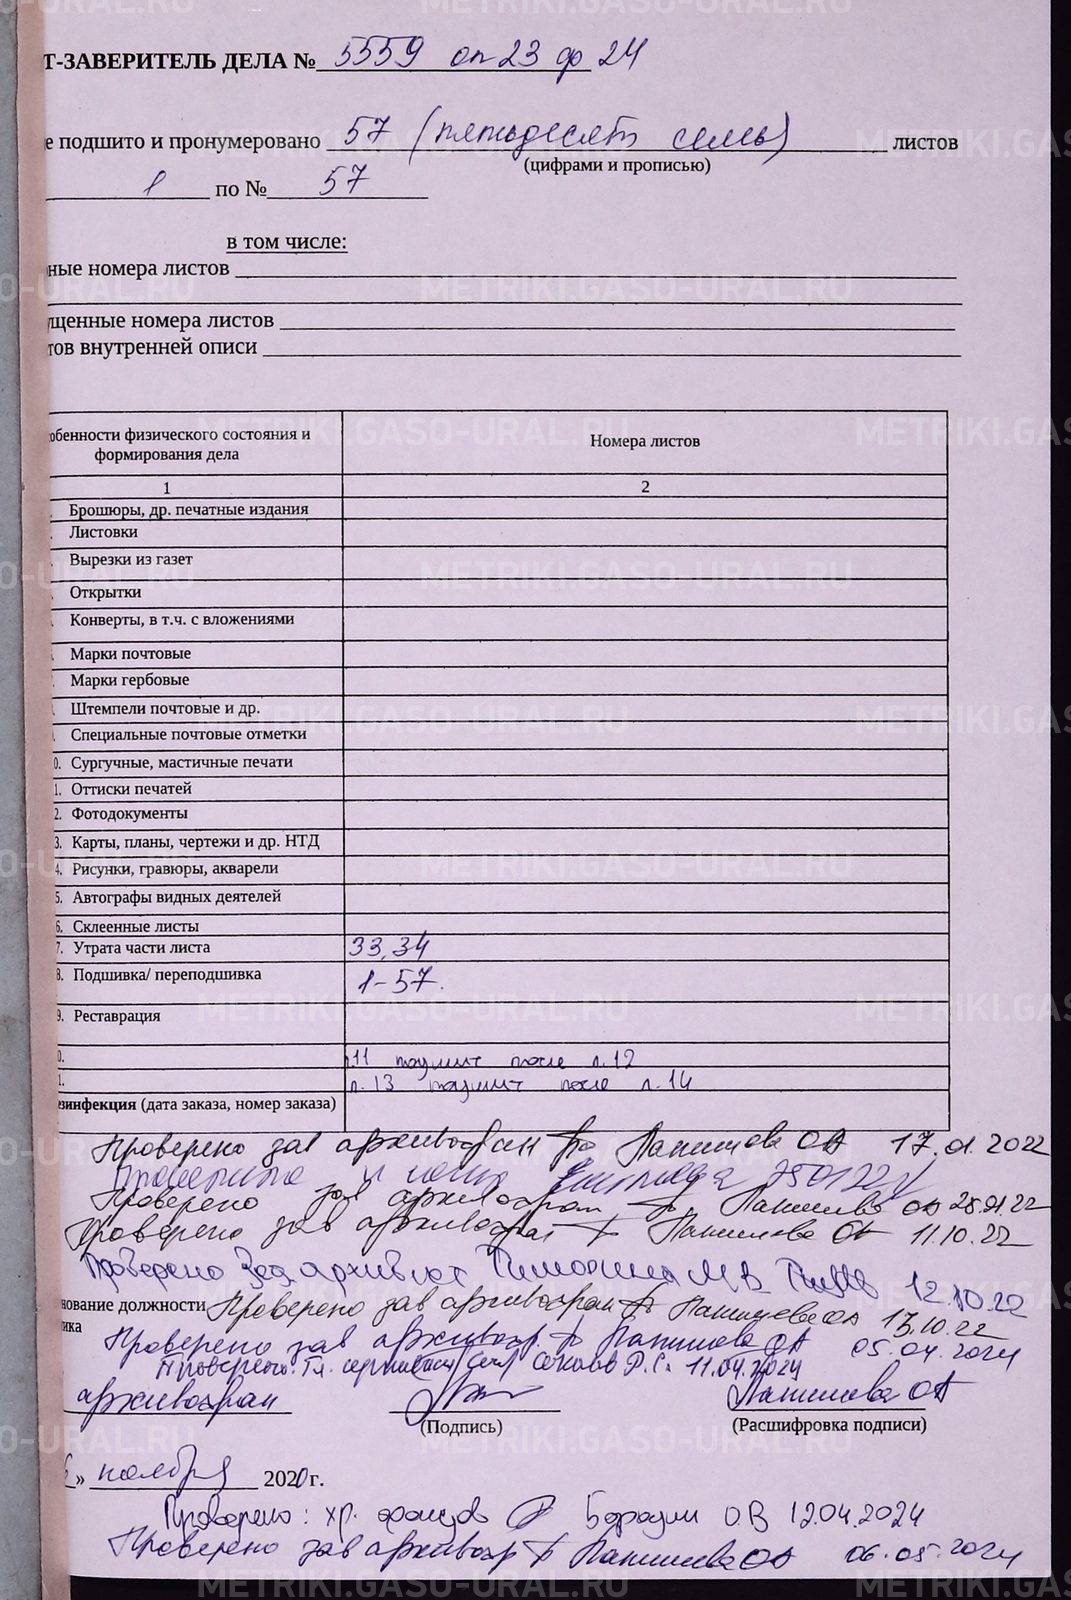 Т-ЗАВЕРИТЕЛЬ ДЕЛА № 5559 оп 23 ф 24
е подшито и пронумеровано 57 (пятьдесят семь) листов
(цифрами и прописью)
1 по № 57
в том числе:
ные номера листов
щенные номера листов
тов внутренней описи
обенности физического состояния и формирования дела
Номера листов
1 2
Брошюры, др. печатные издания
Листовки
Вырезки из газет
Открытки
Конверты, в т.ч. с вложениями
Марки почтовые
Марки гербовые
Штемпели почтовые и др.
Специальные почтовые отметки
0. Сургучные, мастичные печати
1. Оттиски печатей
2. Фотодокументы
3. Карты, планы, чертежи и др. НТД
4. Рисунки, гравюры, акварели
5. Автографы видных деятелей
6. Склеенные листы
7. Утрата части листа 33,34
8. Подшивка/ переподшивка 1-57.
9. Реставрация
0. л.11 подшит после л.12
1. л.13 подшит после л.14
езинфекция (дата заказа, номер заказа)
Проверено зав архивохран 17.01.2022
Проверено зав архивохран 28.01.22
Проверено зав архивохран 11.10.22
Проверено Вед архивист М.В. 12.10.22
нование должности Проверено зав архивохран 13.10.22
ика
Проверено зав архивохр. 05.04.2024
Проверено: Гл. Р.С. 11.04.2024
архивохран
(Подпись) (Расшифровка подписи)
» ноября 2020г.
Проверено: хр. фондов О.В 12.04.2024
Проверено зав архивохр 06.05.2024
METRIKI.GASO-URAL.RU